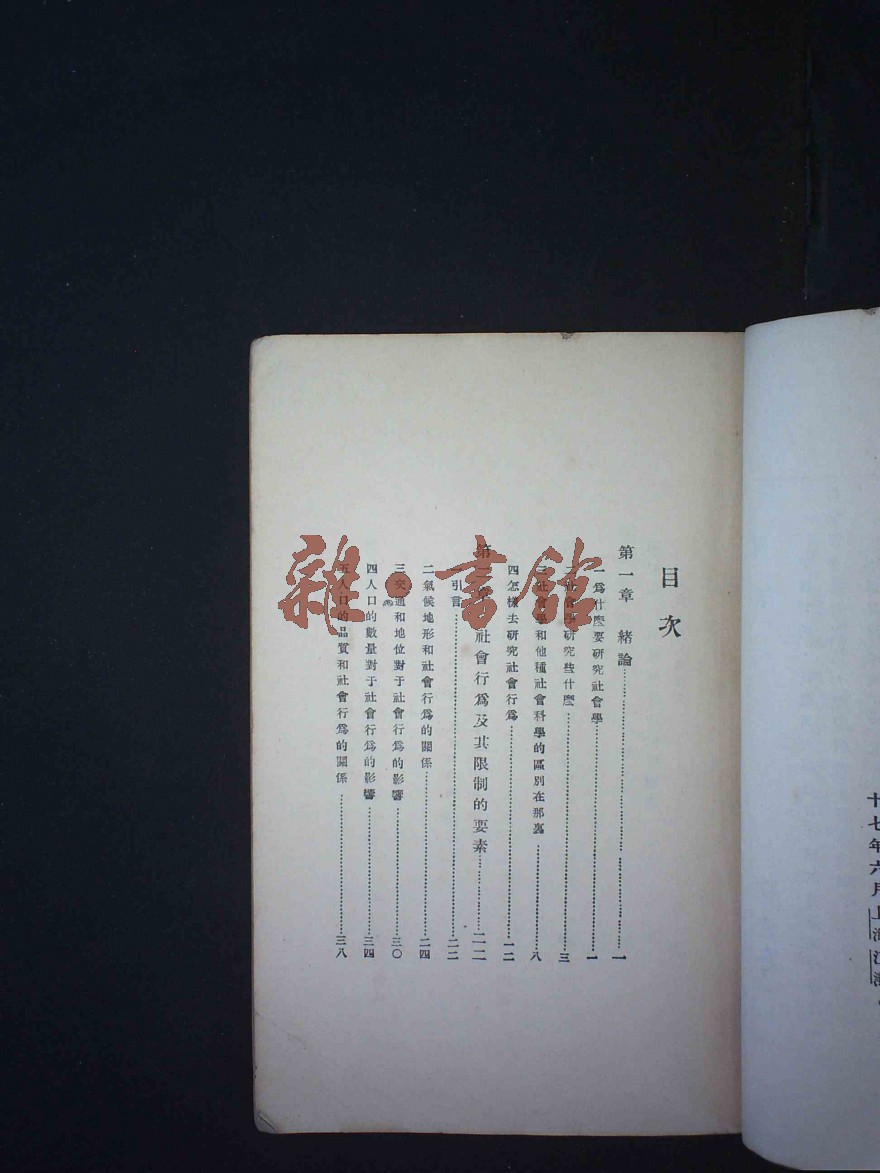 十七年六月上海江灣
目次
第一章 緒論……一
一 爲什麽要研究社會學……一
二 社會學研究些什麽……三
三 社會學和他種社會科學的區別在那裏……八
四 怎樣去研究社會行爲……一二
第二章 社會行爲及其限制的要素……二二
引言……二二
二 氣候地形和社會行爲的關係……二四
三 交通和地位對于社會行爲的影響……三〇
四 人口的數量對于社會行爲的影響……三四
五 人口的品質和社會行爲的關係……三八
雜·書館